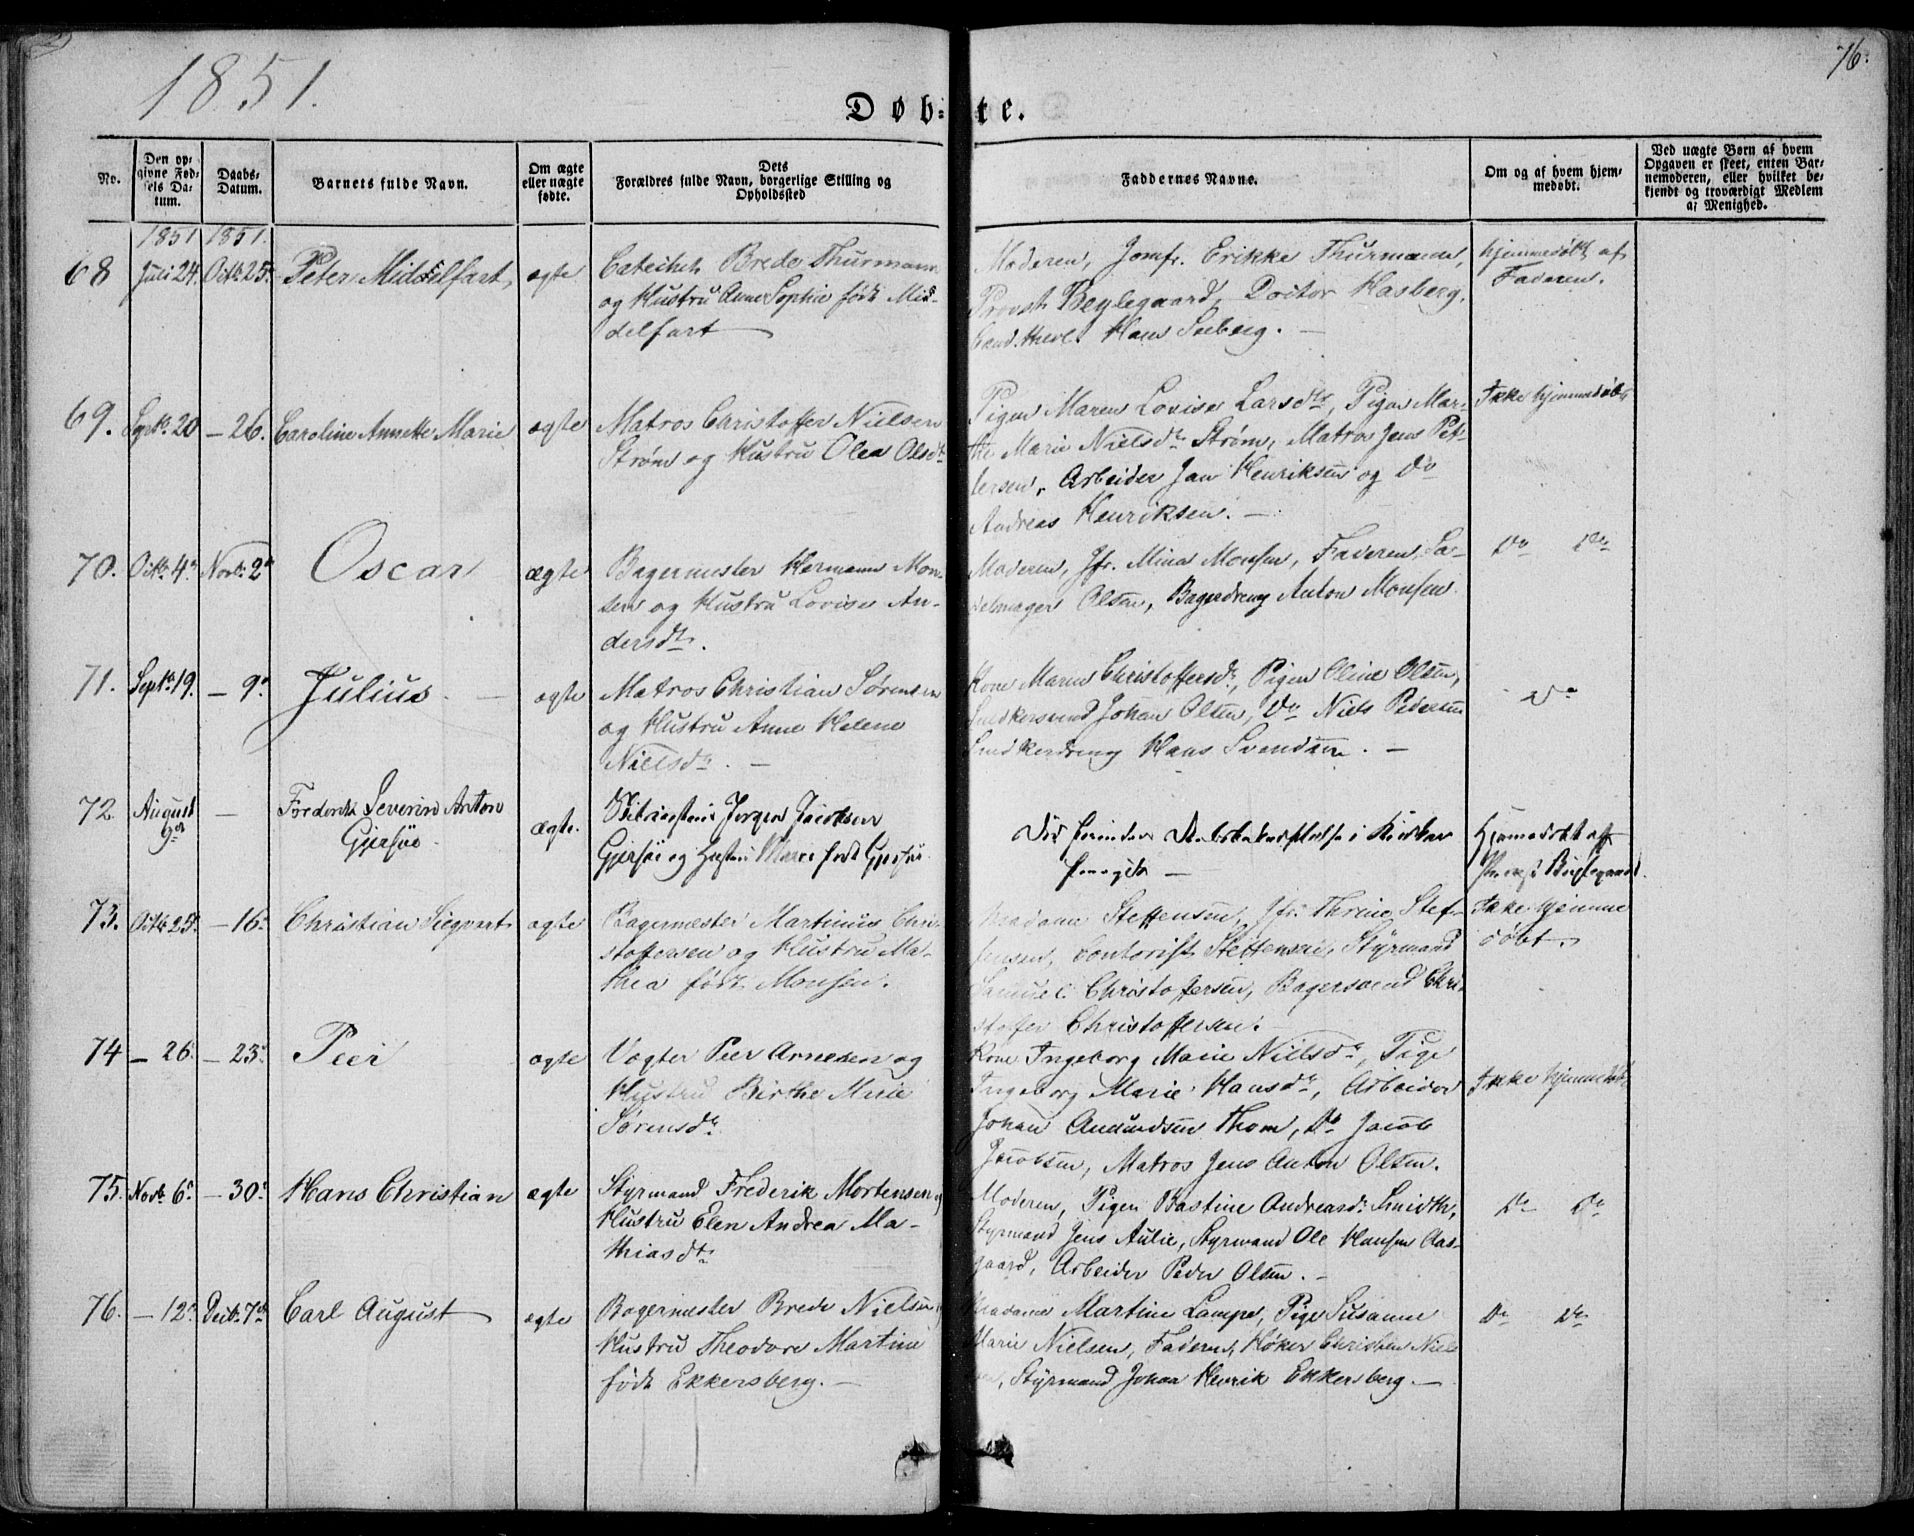 1851.
76.
Døb-te.
No.
Den opgivne Fødsels Datum.
Daabs-Datum.
Barnets fulde Navn.
Om ægte eller uægte fødte.
Dets Forældres fulde Navn, borgerlige Stilling og Opholdssted
Faddernes Navne.
Om og af hvem hjemmedøbt.
Ved uægte Børn af hvem Opgaven er skeet, enten Barnemoderen, eller hvilket bekjendt og troværdigt Medlem af Menighed.
1851 1851.
68 Juli 24. Octbr 25. Peter Middelfart ægte Catechet Brede Thurmann
og Hustru Anne Sophie født Mid-
delfart
Moderen, Jomfr. Erikke Thurmann,
Provst Beylegaard, Doctor Hasberg,
Cand. theol. Hans Seeberg. —
hjemmedøbt af
Faderen.
69. Septbr 20 — 26. Caroline Annette Marie ægte Matros Christoffer Nielsen
Strøm og Hustru Olea Olsdtr
Pigen Maren Lovise Larsdtr, Pigen Mar-
the Marie Nielsdtr Strøm, Matros Jens Pet-
tersen, Arbeider Jan Henriksen og Do
Andreas Henriksen. —
Ikke hjemmedøbt
70. Octbr 4. Novbr 2 Oscar ægte Bagermester Hermann Mon-
sen og Hustru Lovise An-
dersdtr.
Moderen, Jfr. Mina Monsen, Faderen, Sa-
delmager Olsen, Bagerdreng Anton Monsen.
Do Do
71. Septbr 19. — 9. Julius. — ægte Matros Christian Sørensen
og Hustru Anne Helene
Nielsdtr. —
Kone Maren Christoffersdtr, Pigen Oline Olsen,
Snedkersvend Johan Olsen, Do Niels Pedersen
Snedkerdreng Hans Svendsen. —
Do
72. August 9 — Severin Anton
Gjersøe ægte. Jørgen Jacobsen
Gjersøe og Hustru Maren født Gjersøe.
i Kirken
—
Hjemmedøbt af
Provst Beylegaard.
73. Octbr 25. — 16. Christian Siegvart ægte Bagermester Martinus Chri-
stoffersen og Hustru Ma-
thea født Monsen.
Madame Steffensen, Jfr. Thrine Stef-
fensen, Contorist Steffensen, Styrmand
Samuel Christoffersen, Bagersvend Chri-
stoffer Christoffersen.
Ikke hjemme
døbt.
74 — 26. — 23. Peer ægte Vægter Peer Arnesen og
Hustru Birthe Marie
Sørensdtr
Kone Ingeborg Marie Nielsdtr, Pige
Ingeborg Marie Hansdtr, Arbeider
Johan Amundsen Thom, Do Jacob
Jacobsen, Matros Jens Anton Olsen.
Ikke hjemmedøbt
75. Novbr 6. — 30. Hans Christian ægte Styrmand Frederik Mortensen og
Hustru Elen Andrea Ma-
thiasdtr
Moderen, Pigen Bastine Andreasdtr Smidth,
Styrmand Jens Aulie, Styrmand Ole Hansen Aas-
gaard, Arbeider Peder Olsen. —
Do Do
76. — 12. Decbr 7. Carl August ægte Bagermester Brede Nielsen og
Hustru Theodore Martine
født Ekkersberg. —
Madame Martine Lampe, Pige Susanne
Marie Nielsen, Faderen, Høker Christen Niel-
sen, Styrmand Johan Henrik Ekkersberg. —
Do Do